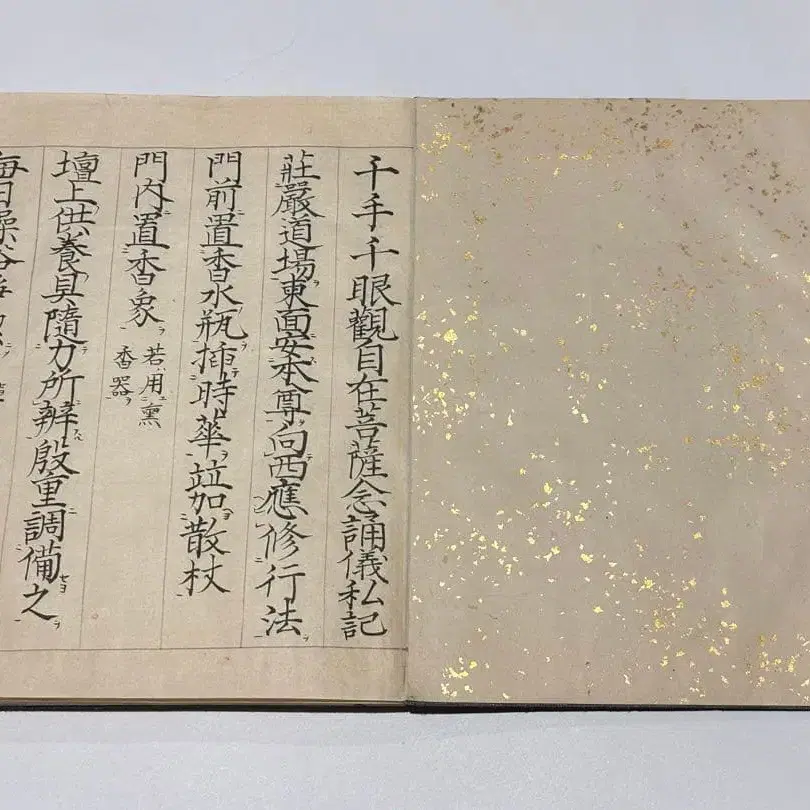 千手千眼觀自在菩薩念誦儀私記
莊嚴道場東面安本尊向西應修行法
門前置香水瓶挿時華竝加散杖
門内置香象
若用熏
香器
壇上供養具隨力所辨殷重調備之
毎日澡浴